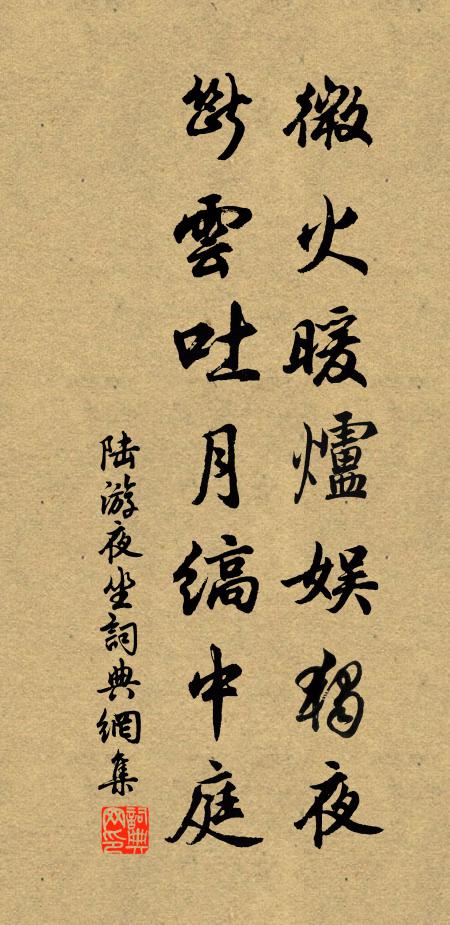 微火暖爐娱獨夜
斷雲吐月縞中庭
陆游夜坐詞典網集
詞典網印